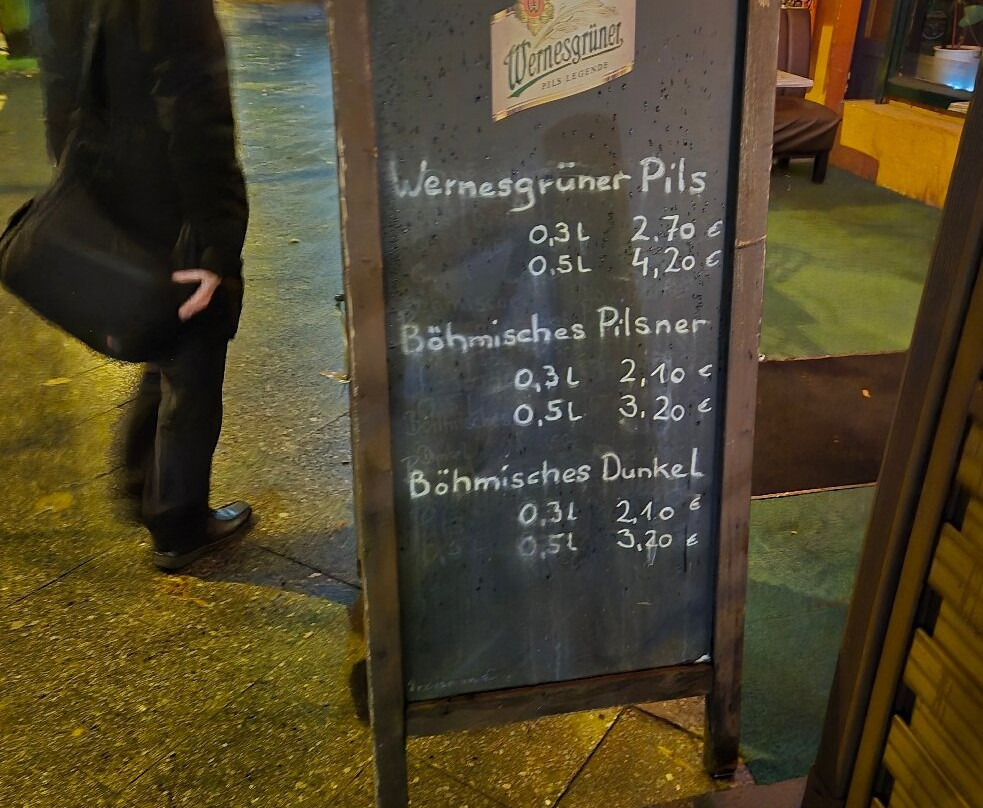 Wernesgrüner
PILS LEGENDE
Wernesgrüner Pils
0,3L 2,70 €
0,5L 4,20 €
Böhmisches Pilsner
0,3L 2,10 €
0,5L 3,20 €
Böhmisches Dunkel
0,3L 2,10 €
0,5L 3,20 €